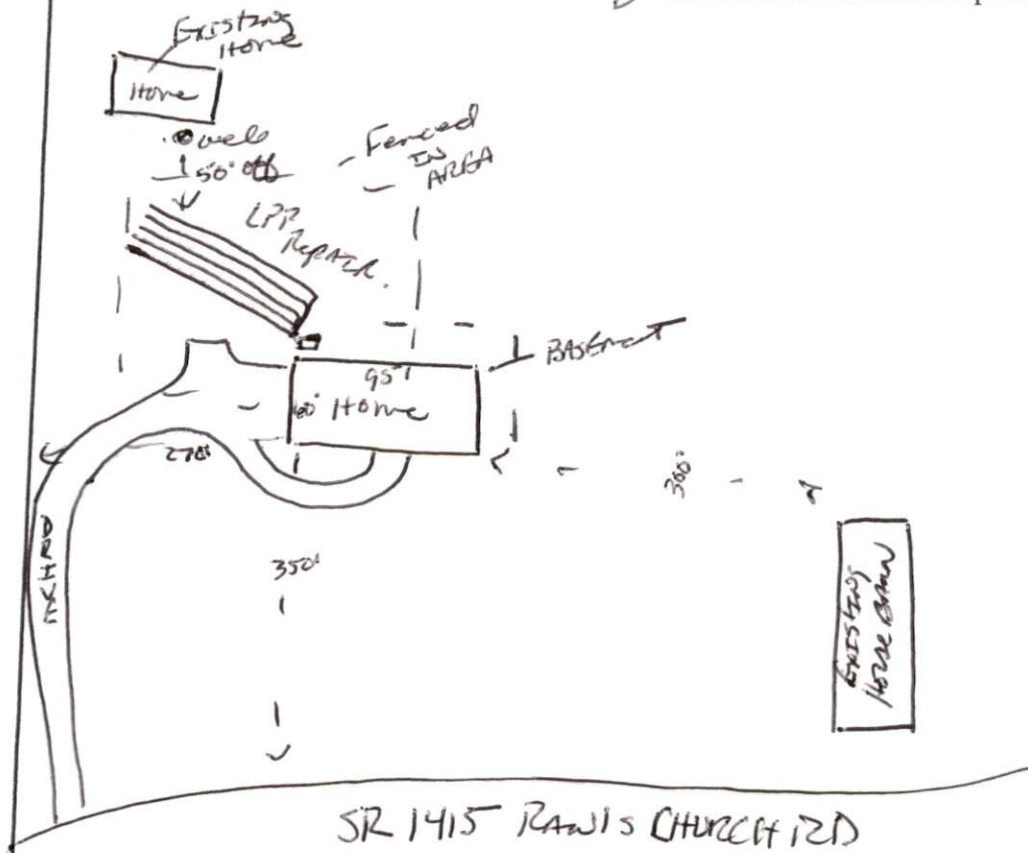 Existing
Home
Home
well
50' off
Fenced
IN
AREA
LPP
Repair.
BASEMENT
95'
60' Home
270'
300'
350'
EXISTING
HORSE BARN
SR 1415 RAWLS CHURCH RD